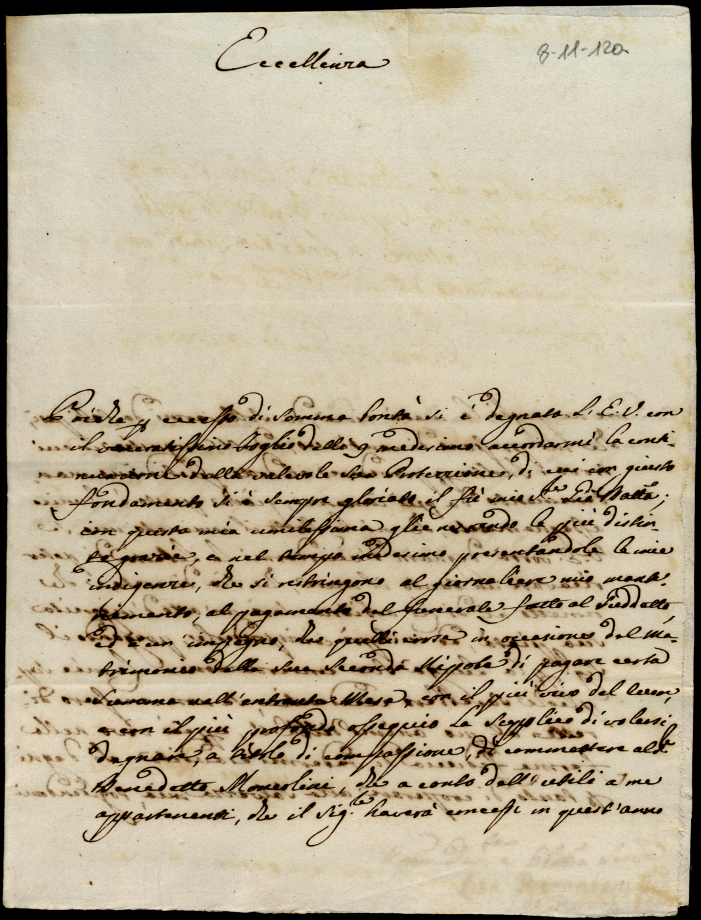 Eccellenza
8-11-120
Poiche per eccesso di somma bontà si è degnata L'E.V. con
il veneratissimo foglio delli 9 medesimo accordarmi la conti-
nuazione della valevole sua Protezzione, di cui con giusto
fondamento si è sempre gloriato il fù mio
con questa mia umilissima gliene rendo le più distin-
te grazie, e nel tempo medesimo presentandole le mie
indigenze, che si restringono al giornaliere mio mante-
nimento, al pagamento del funerale fatto al suddetto,
ed a un' impegno, che quelli corse in occasione del Ma-
trimonio della sua seconda Nipote di pagare certa
somma nell'entrante Mese, con il più vivo del cuore,
e con il più profondo ossequio La supplico di volersi
degnare, a titolo di compassione, di commettere al
Benedetto Momerlini, che a conto dell'utili a me
appartenenti, che il Sig.re haverà concessi in quest'anno